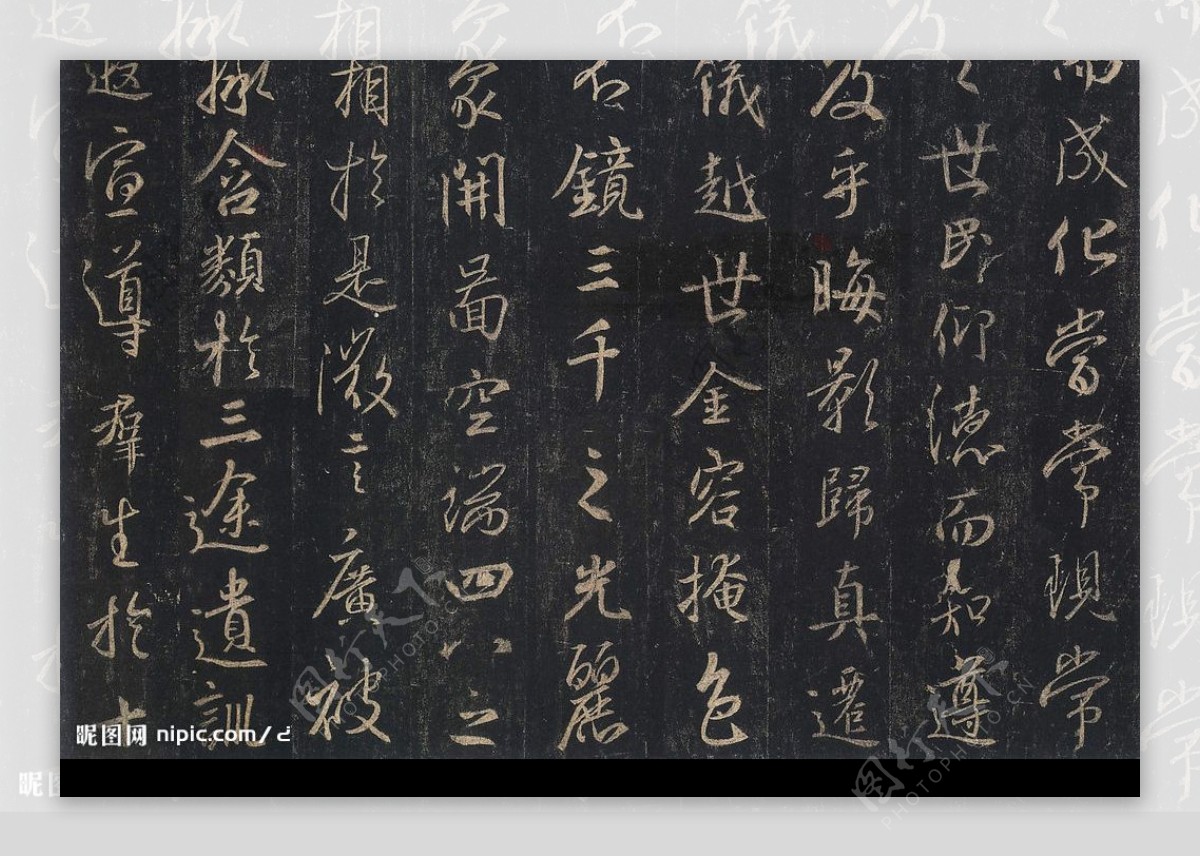 而成化當常現常
之世民仰德而知遵
及乎晦影歸真遷
儀越世金容掩色
不鏡三千之光麗
象開圖空端四八之
相於是微言廣被
拯含類於三途遺訓
遐宣導羣生於十
昵图网 nipic.com/
图行天下 PHOTOPHOTO.CN